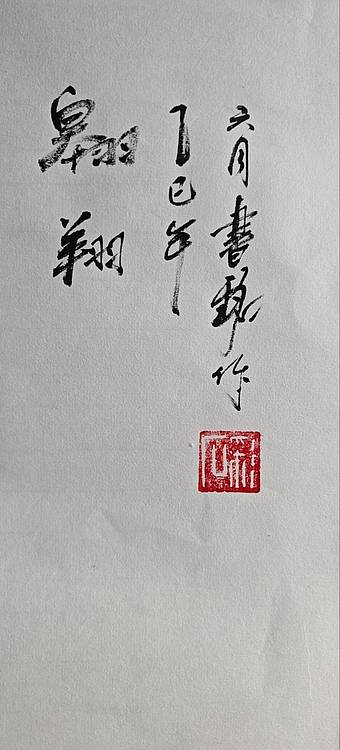 翱翔
丁巳年
六月書作